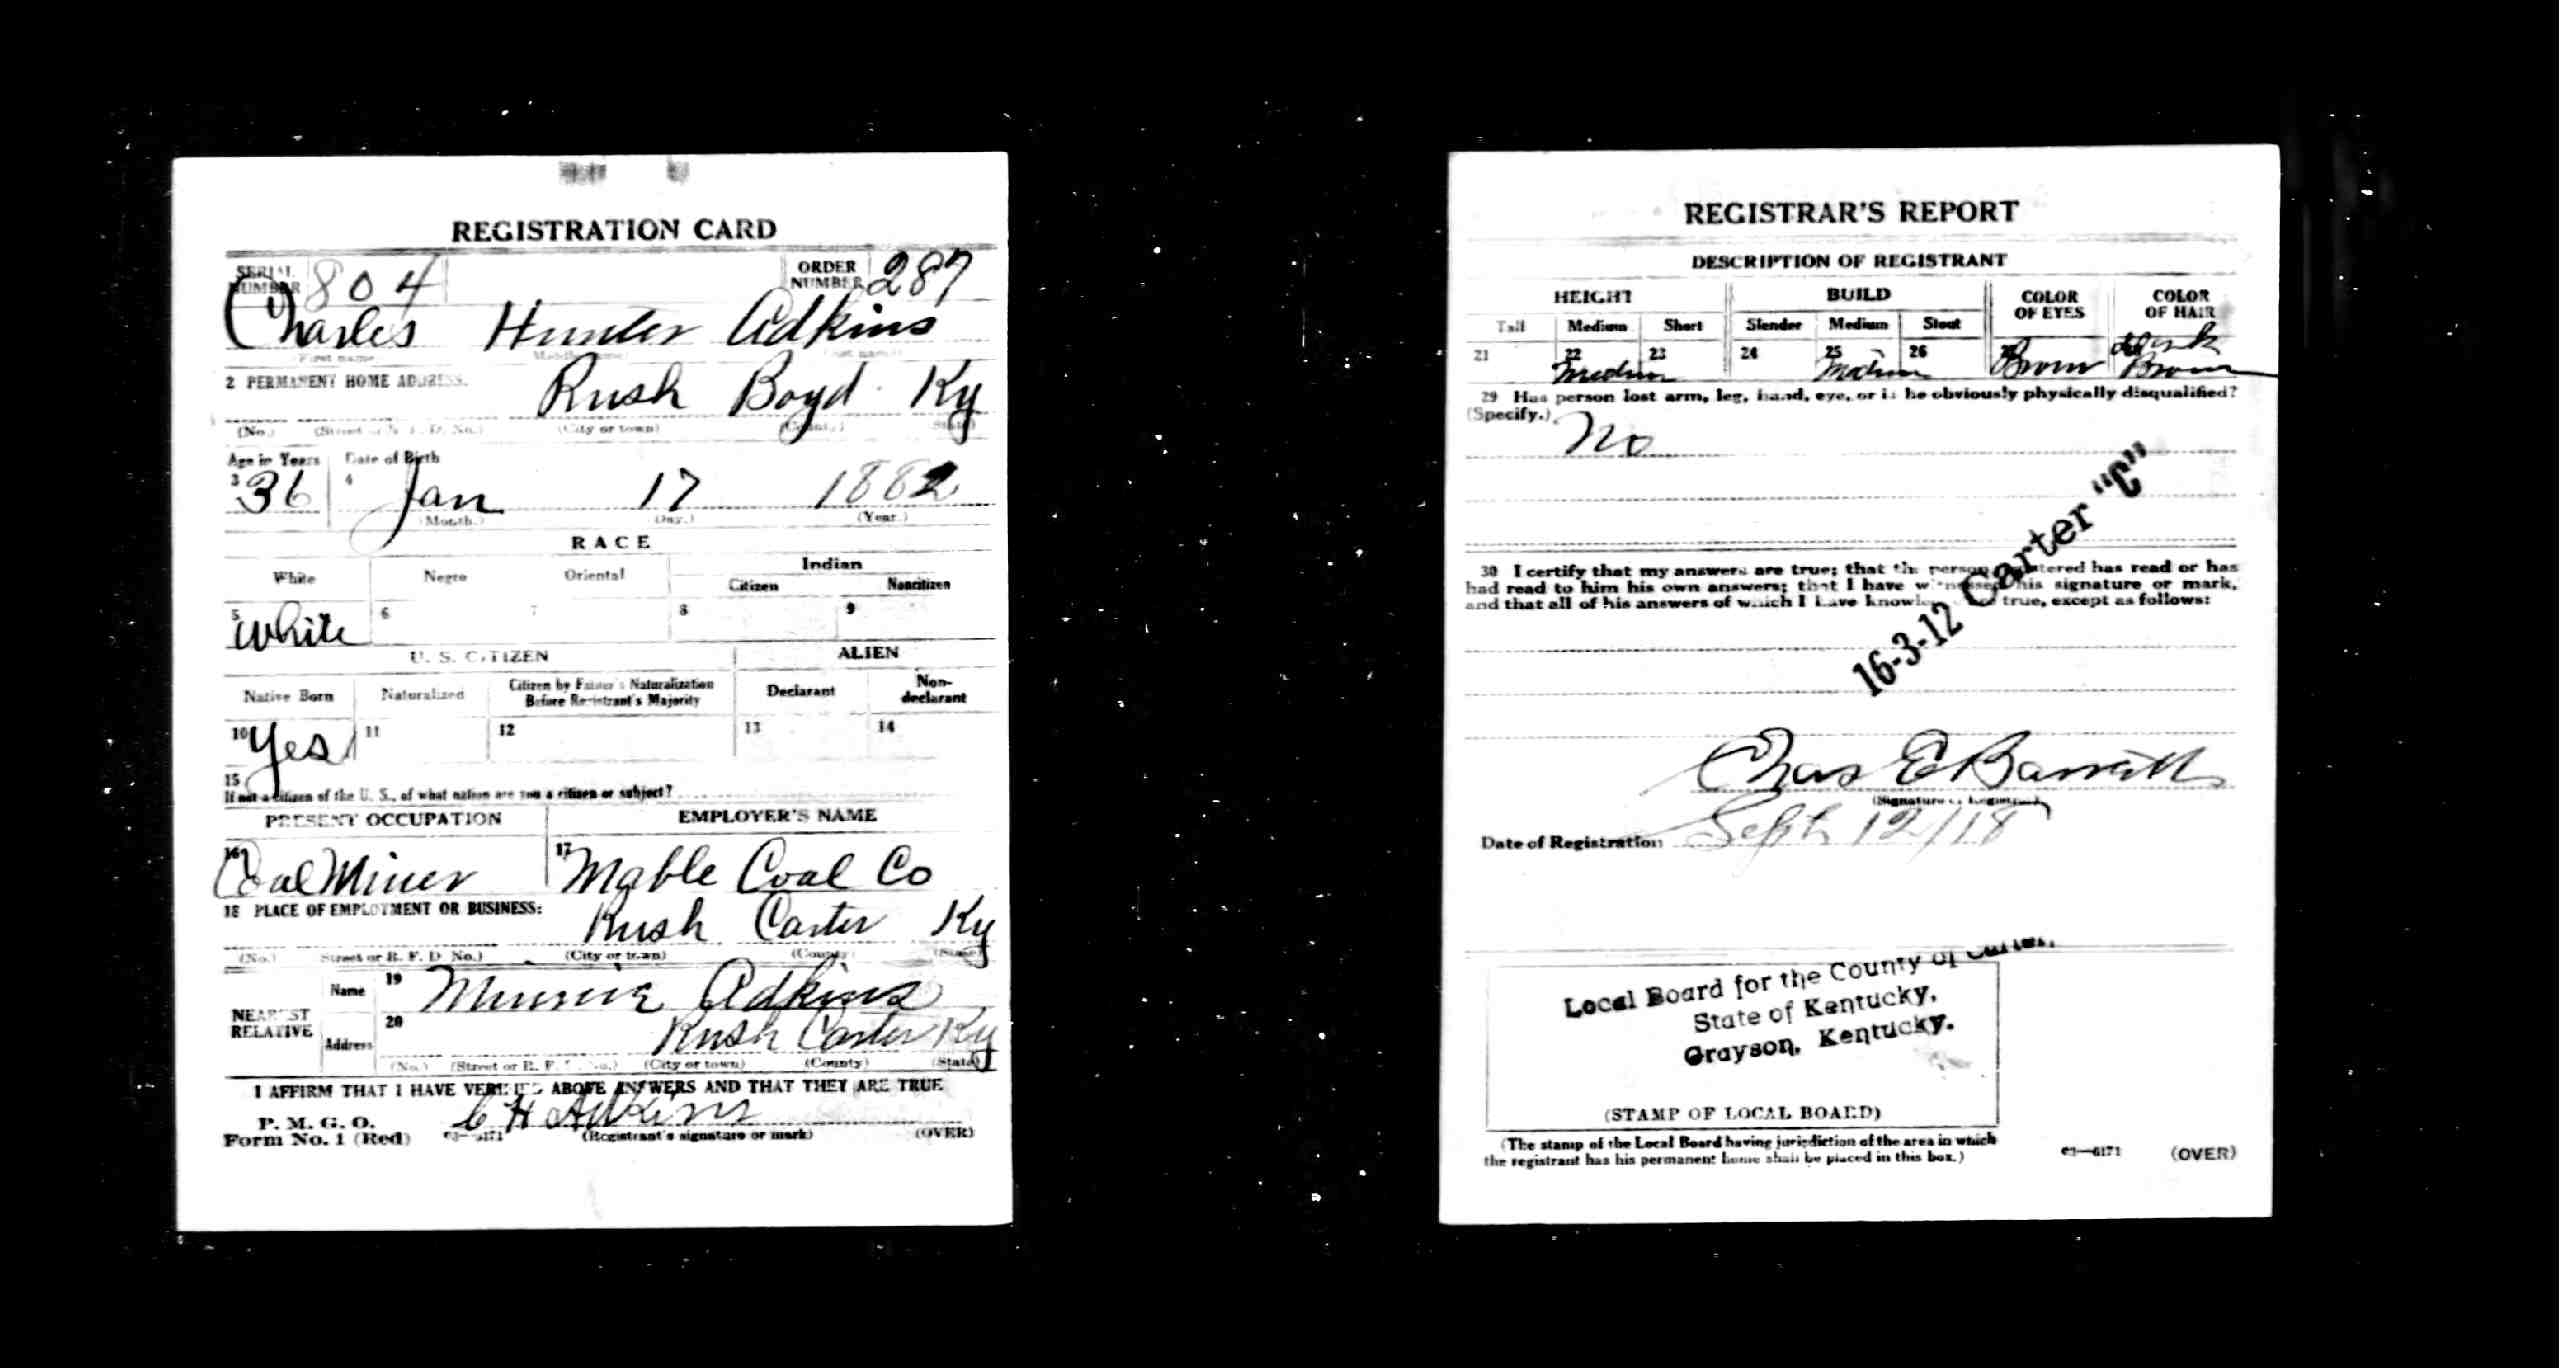 REGISTRATION CARD
SERIAL NUMBER 804 ORDER NUMBER 287
Charles Hunter Adkins
(First name) (Middle name) (Last name)
2 PERMANENT HOME ADDRESS.
Rush Boyd Ky
(No.) (Street or R. F. D. No.) (City or town) (County) (State)
Age in Years Date of Birth
3 36 4 Jan 17 1882
(Month.) (Day.) (Year.)
RACE
White Negro Oriental Indian
Citizen Noncitizen
5 White 6 7 8 9
U. S. CITIZEN ALIEN
Native Born Naturalized Citizen by Father's Naturalization Before Registrant's Majority Declarant Non-declarant
10 Yes 11 12 13 14
15
If not a citizen of the U. S., of what nation are you a citizen or subject?
PRESENT OCCUPATION EMPLOYER'S NAME
16 Coal Miner 17 Mable Coal Co
18 PLACE OF EMPLOYMENT OR BUSINESS:
Rush Carter Ky
(No.) Street or R. F. D. No.) (City or town) (County) (State)
NEAREST RELATIVE
Name 19 Minnie Adkins
Address 20 Rush Carter Ky
(No.) (Street or R. F. D. No.) (City or town) (County) (State)
I AFFIRM THAT I HAVE VERIFIED ABOVE ANSWERS AND THAT THEY ARE TRUE
P. M. G. O.
Form No. 1 (Red) C H Adkins
03—6171 (Registrant's signature or mark) (OVER)
REGISTRAR'S REPORT
DESCRIPTION OF REGISTRANT
HEIGHT BUILD COLOR OF EYES COLOR OF HAIR
Tall Medium Short Slender Medium Stout
21 22 Medium 23 24 25 Medium 26 Brown Dark Brown
29 Has person lost arm, leg, hand, eye, or is he obviously physically disqualified?
(Specify.)
No
30 I certify that my answers are true; that the person registered has read or has
had read to him his own answers; that I have witnessed his signature or mark,
and that all of his answers of which I have knowledge are true, except as follows:
16-3-12 Carter "C"
Chas E Barrett
(Signature of Registrar)
Date of Registration Sept 12/18
Local Board for the County of Carter,
State of Kentucky,
Grayson, Kentucky.
(STAMP OF LOCAL BOARD)
(The stamp of the Local Board having jurisdiction of the area in which
the registrant has his permanent home shall be placed in this box.)
03—6171 (OVER)